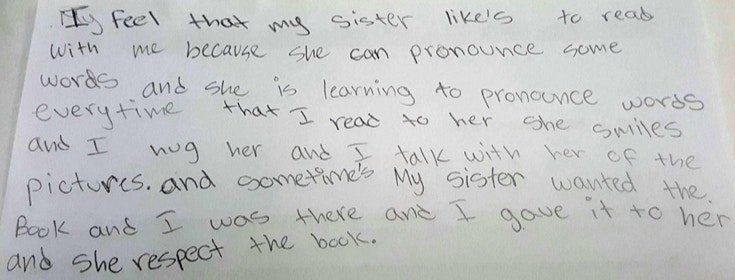 I feel that my sister like's to read
with me because she can pronounce some
words and she is learning to pronounce words
everytime that I read to her she smiles
and I hug her and I talk with her of the
pictures. and sometime's My sister wanted the.
Book and I was there and I gave it to her
and she respect the book.